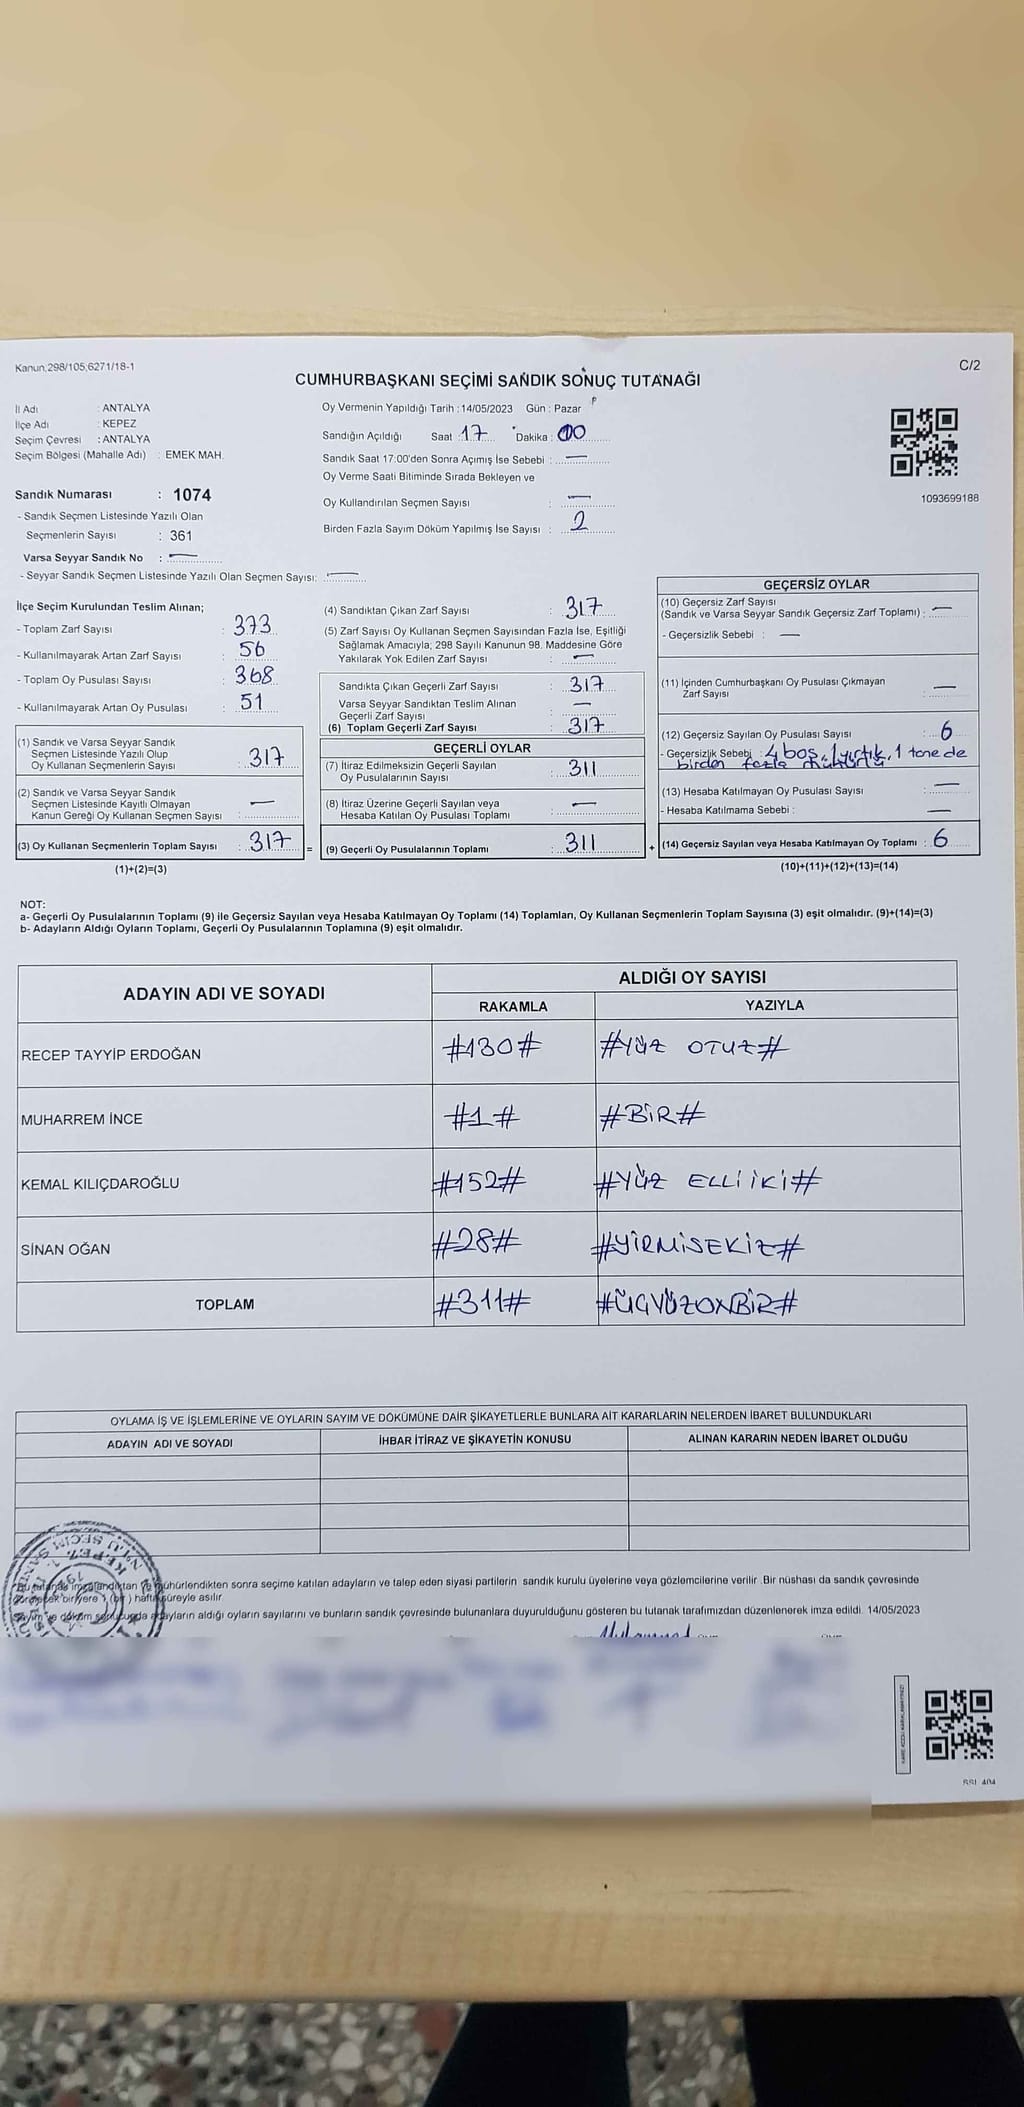 Kanun,298/105;6271/18-1
C/2
CUMHURBAŞKANI SEÇİMİ SANDIK SONUÇ TUTANAĞI
İl Adı : ANTALYA
İlçe Adı : KEPEZ
Seçim Çevresi : ANTALYA
Seçim Bölgesi (Mahalle Adı) : EMEK MAH.
Sandık Numarası : 1074
- Sandık Seçmen Listesinde Yazılı Olan
Seçmenlerin Sayısı : 361
Varsa Seyyar Sandık No : —
- Seyyar Sandık Seçmen Listesinde Yazılı Olan Seçmen Sayısı: —
Oy Vermenin Yapıldığı Tarih : 14/05/2023 Gün : Pazar
Sandığın Açıldığı Saat : 17 Dakika : 00
Sandık Saat 17:00'den Sonra Açımış İse Sebebi : —
Oy Verme Saati Bitiminde Sırada Bekleyen ve
Oy Kullandırılan Seçmen Sayısı : —
Birden Fazla Sayım Döküm Yapılmış İse Sayısı : 2
1093699188
İlçe Seçim Kurulundan Teslim Alınan;
- Toplam Zarf Sayısı : 373
- Kullanılmayarak Artan Zarf Sayısı : 56
- Toplam Oy Pusulası Sayısı : 368
- Kullanılmayarak Artan Oy Pusulası : 51
(1) Sandık ve Varsa Seyyar Sandık
Seçmen Listesinde Yazılı Olup
Oy Kullanan Seçmenlerin Sayısı : 317
(2) Sandık ve Varsa Seyyar Sandık
Seçmen Listesinde Kayıtlı Olmayan
Kanun Gereği Oy Kullanan Seçmen Sayısı : —
(3) Oy Kullanan Seçmenlerin Toplam Sayısı : 317 =
(1)+(2)=(3)
(4) Sandıktan Çıkan Zarf Sayısı : 317
(5) Zarf Sayısı Oy Kullanan Seçmen Sayısından Fazla İse, Eşitliği
Sağlamak Amacıyla; 298 Sayılı Kanunun 98. Maddesine Göre
Yakılarak Yok Edilen Zarf Sayısı : —
Sandıkta Çıkan Geçerli Zarf Sayısı : 317
Varsa Seyyar Sandıktan Teslim Alınan
Geçerli Zarf Sayısı : —
(6) Toplam Geçerli Zarf Sayısı : 317
GEÇERLİ OYLAR
(7) İtiraz Edilmeksizin Geçerli Sayılan
Oy Pusulalarının Sayısı : 311
(8) İtiraz Üzerine Geçerli Sayılan veya
Hesaba Katılan Oy Pusulası Toplamı : —
(9) Geçerli Oy Pusulalarının Toplamı : 311 +
GEÇERSİZ OYLAR
(10) Geçersiz Zarf Sayısı
(Sandık ve Varsa Seyyar Sandık Geçersiz Zarf Toplamı) : —
- Geçersizlik Sebebi : —
(11) İçinden Cumhurbaşkanı Oy Pusulası Çıkmayan
Zarf Sayısı —
(12) Geçersiz Sayılan Oy Pusulası Sayısı : 6
- Geçersizlik Sebebi : 4 boş, 1 yırtık, 1 tane de
birden fazla mühürlü
(13) Hesaba Katılmayan Oy Pusulası Sayısı : —
- Hesaba Katılmama Sebebi : —
(14) Geçersiz Sayılan veya Hesaba Katılmayan Oy Toplamı : 6
(10)+(11)+(12)+(13)=(14)
NOT:
a- Geçerli Oy Pusulalarının Toplamı (9) ile Geçersiz Sayılan veya Hesaba Katılmayan Oy Toplamı (14) Toplamları, Oy Kullanan Seçmenlerin Toplam Sayısına (3) eşit olmalıdır. (9)+(14)=(3)
b- Adayların Aldığı Oyların Toplamı, Geçerli Oy Pusulalarının Toplamına (9) eşit olmalıdır.
ADAYIN ADI VE SOYADI
ALDIĞI OY SAYISI
RAKAMLA YAZIYLA
RECEP TAYYİP ERDOĞAN #130# #YÜZ OTUZ#
MUHARREM İNCE #1# #BİR#
KEMAL KILIÇDAROĞLU #152# #YÜZ ELLİ İKİ#
SİNAN OĞAN #28# #YİRMİSEKİZ#
TOPLAM #311# #ÜÇYÜZONBİR#
OYLAMA İŞ VE İŞLEMLERİNE VE OYLARIN SAYIM VE DÖKÜMÜNE DAİR ŞİKAYETLERLE BUNLARA AİT KARARLARIN NELERDEN İBARET BULUNDUKLARI
ADAYIN ADI VE SOYADI İHBAR İTİRAZ VE ŞİKAYETİN KONUSU ALINAN KARARIN NEDEN İBARET OLDUĞU
Bu tutanak imzalandıktan ve mühürlendikten sonra seçime katılan adayların ve talep eden siyasi partilerin sandık kurulu üyelerine veya gözlemcilerine verilir. Bir nüshası da sandık çevresinde
bir yere 1 (bir) hafta süreyle asılır.
Sayım ve döküm sonucunda adayların aldığı oyların sayılarını ve bunların sandık çevresinde bulunanlara duyurulduğunu gösteren bu tutanak tarafımızdan düzenlenerek imza edildi. 14/05/2023